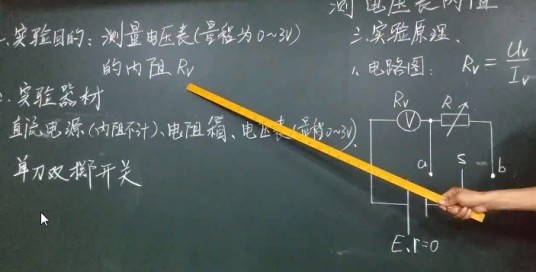 测电压表内阻
一、实验目的：测量电压表(量程为0~3V)
的内阻 Rv
二、实验器材
直流电源(内阻不计)、电阻箱、电压表(量程0~3V)、
单刀双掷开关
三、实验原理、
1、电路图： Rv = Uv/Iv
Rv R
V
a s b
E、r=0